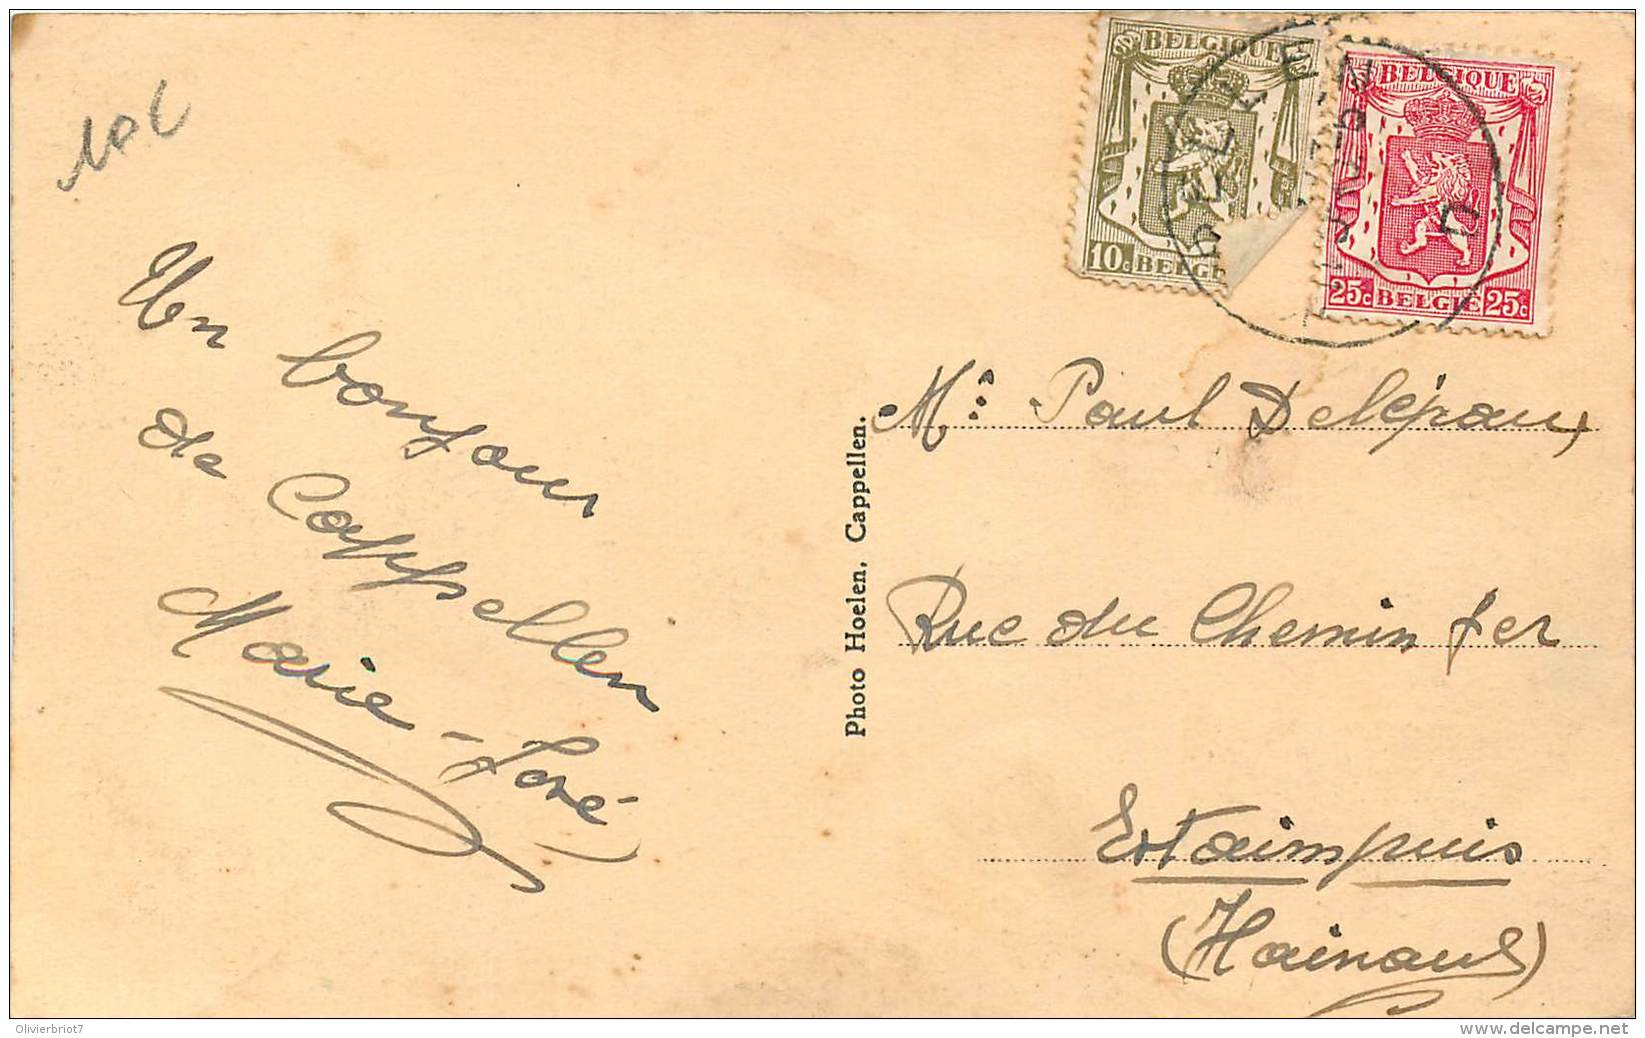 Un bonjour
de Cappellen
Marie-José
Photo Hoelen, Cappellen.
BELGIQUE
10c BELGI
BELGIQUE
25c BELGIË 25c
Mr Paul
Rue du Chemin fer
Estaimpuis
(Hainaut)
Olivierbriot7
www.delcampe.net